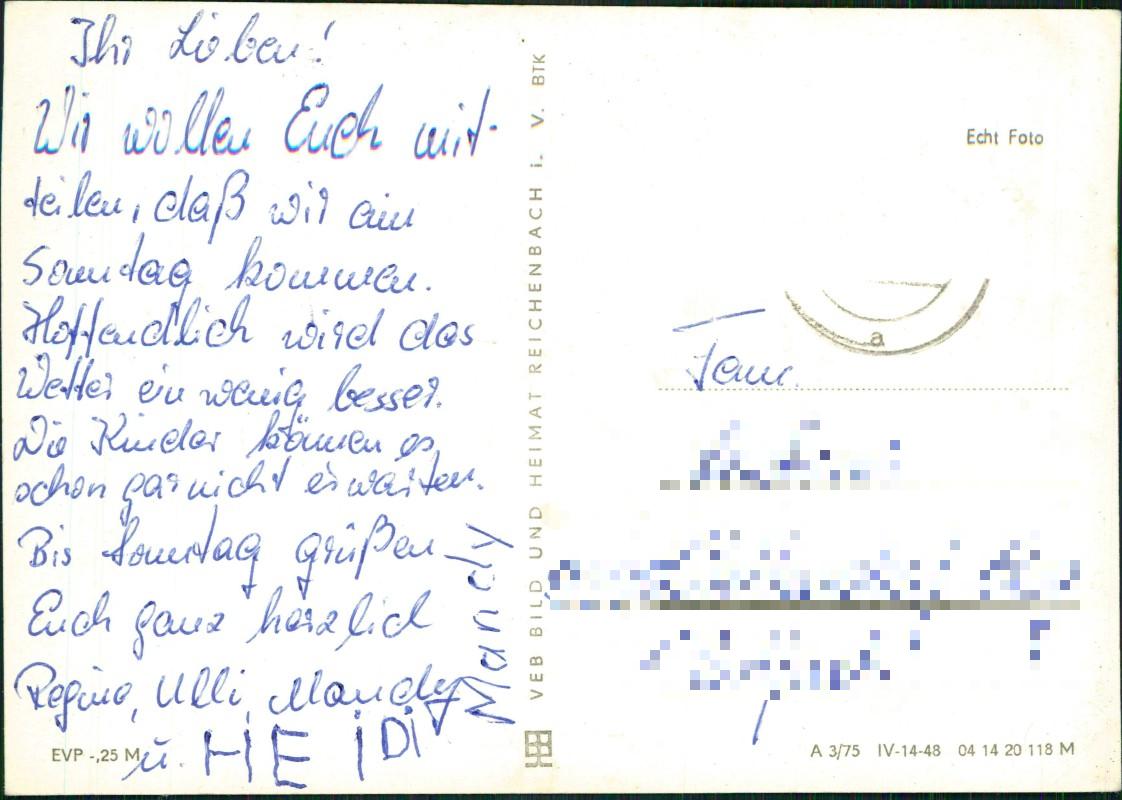 Ihr Lieben!
Wir wollen Euch mit-
teilen, daß wir am
Sonntag kommen.
Hoffendlich wird das
Wetter ein wenig besser.
Die Kinder können es
schon garnicht erwarten.
Bis Sonntag grüßen
Euch ganz herzlich
Regina, Ulli, Mandy
u. HEIDI
Mandy
EVP -,25 M
VEB BILD UND HEIMAT REICHENBACH i. V. BTK
Echt Foto
a
Fam.
A 3/75 IV-14-48 04 14 20 118 M